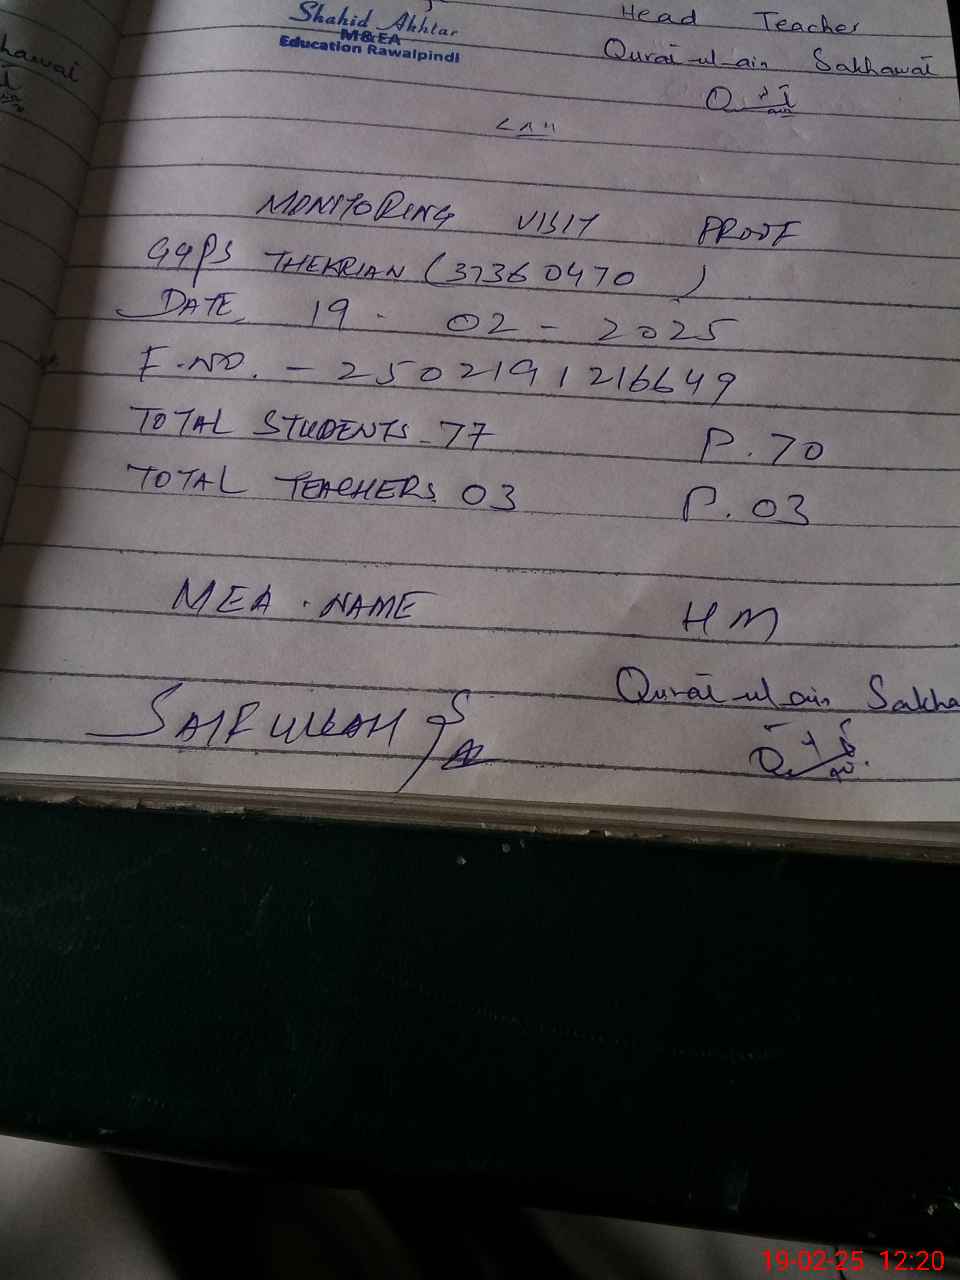 Shahid Akhtar
M&EA
Education Rawalpindi
Head Teacher
Qurat-ul-ain Sakhawat
MONITORING VISIT PROOF
GGPS THEKRIAN (37360470)
DATE 19-02-2025
F.NO. - 2502191216649
TOTAL STUDENTS - 77 P. 70
TOTAL TEACHERS 03 P. 03
MEA. NAME HM
Qurat-ul-ain Sakha
SAIFULLAH
19-02-25 12:20